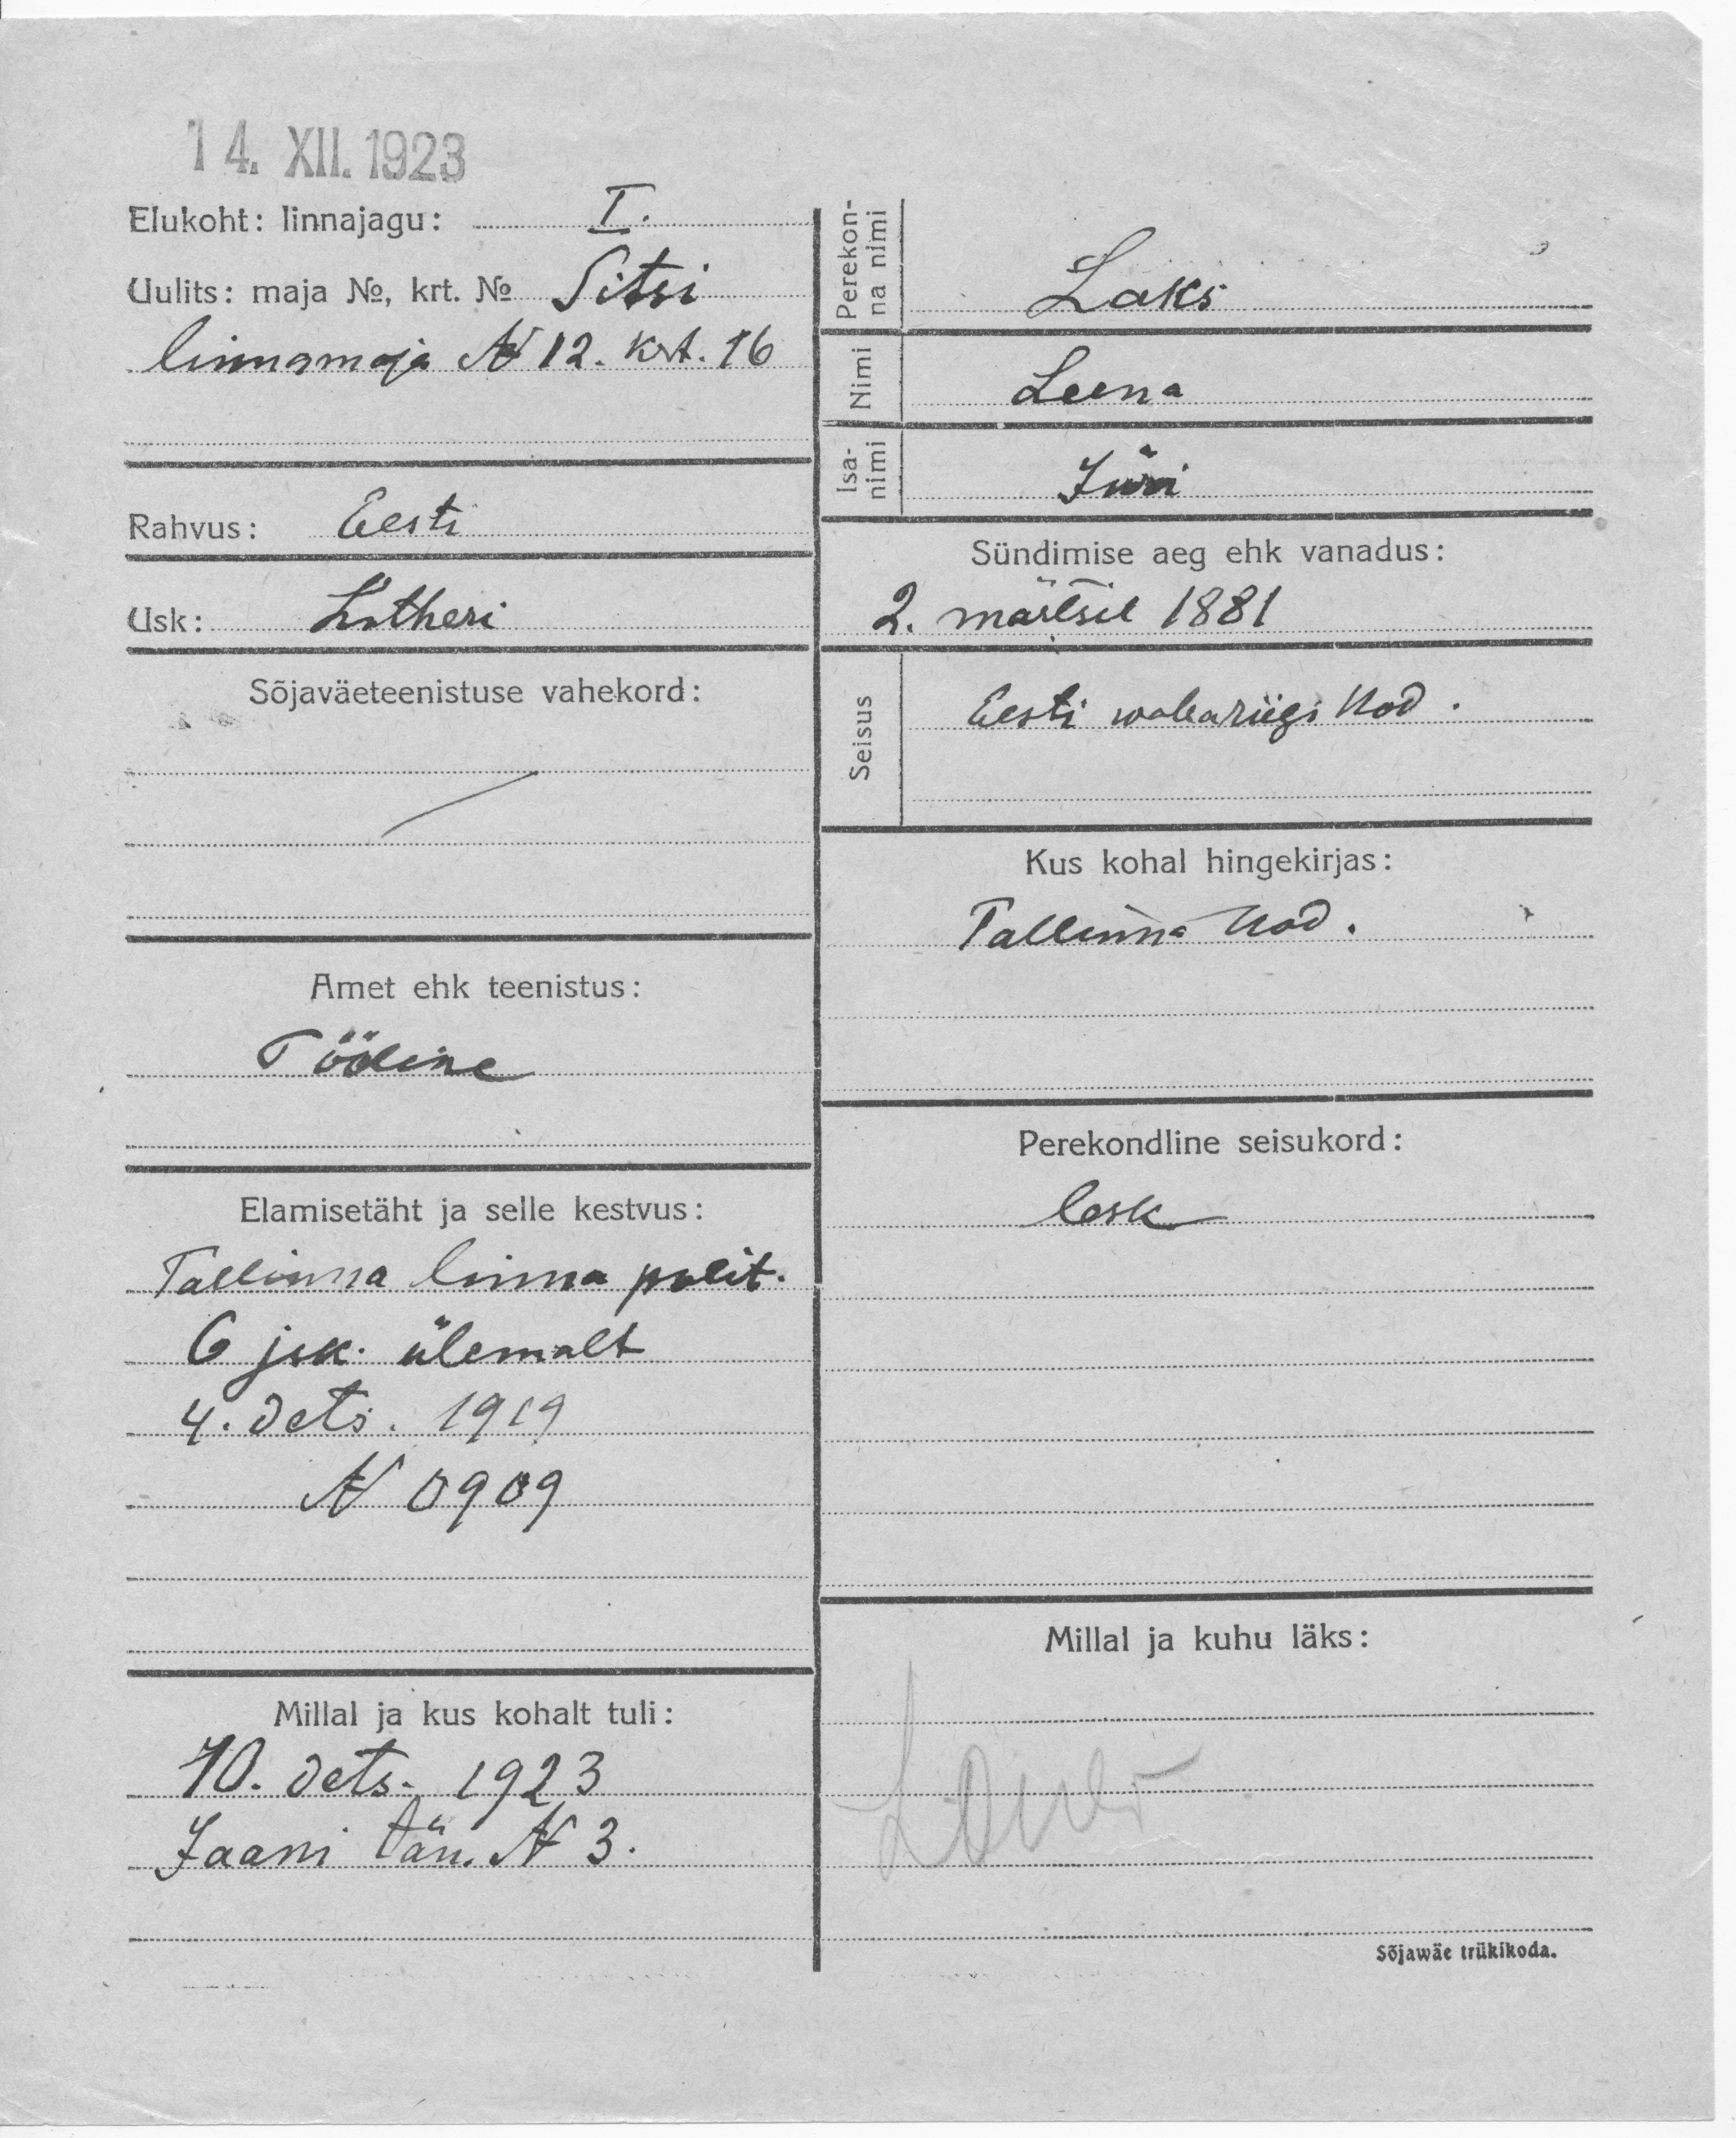 14. XII. 1923
Elukoht: linnajagu: I.
Uulits: maja №, krt. № Sitsi
linnamaja N 12. krt. 16
Rahvus: Eesti
Usk: Lutheri
Sõjaväeteenistuse vahekord:
Amet ehk teenistus:
Tööline
Elamisetäht ja selle kestvus:
Tallinna linna polit.
6 jsk. ülemalt
4. dets. 1919
N 0909
Millal ja kus kohalt tuli:
10. dets. 1923
Jaani tän. N 3.
Perekon-
na nimi
Laks
Nimi
Leena
Isa-
nimi
Jüri
Sündimise aeg ehk vanadus:
2. märtsil 1881
Seisus
Eesti wabariigi kod.
Kus kohal hingekirjas:
Tallinna kod.
Perekondline seisukord:
lesk
Millal ja kuhu läks:
Sõjawäe trükikoda.